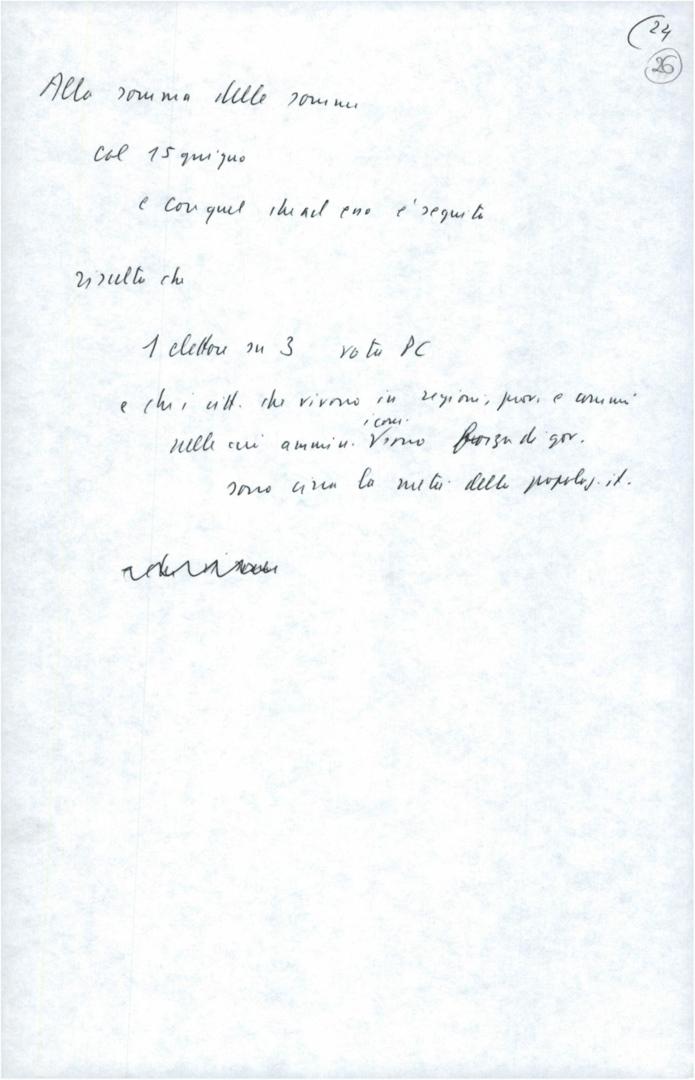 (24
26
Alla somma delle somme
col 15 giugno
e con quel che ad esso è seguito
risulta che
1 elettore su 3 vota PC
e che i citt. che vivono in regioni, prov. e comuni
i com.
nelle cui ammin. sono forza di gov.
sono circa la metà della popolaz. it.